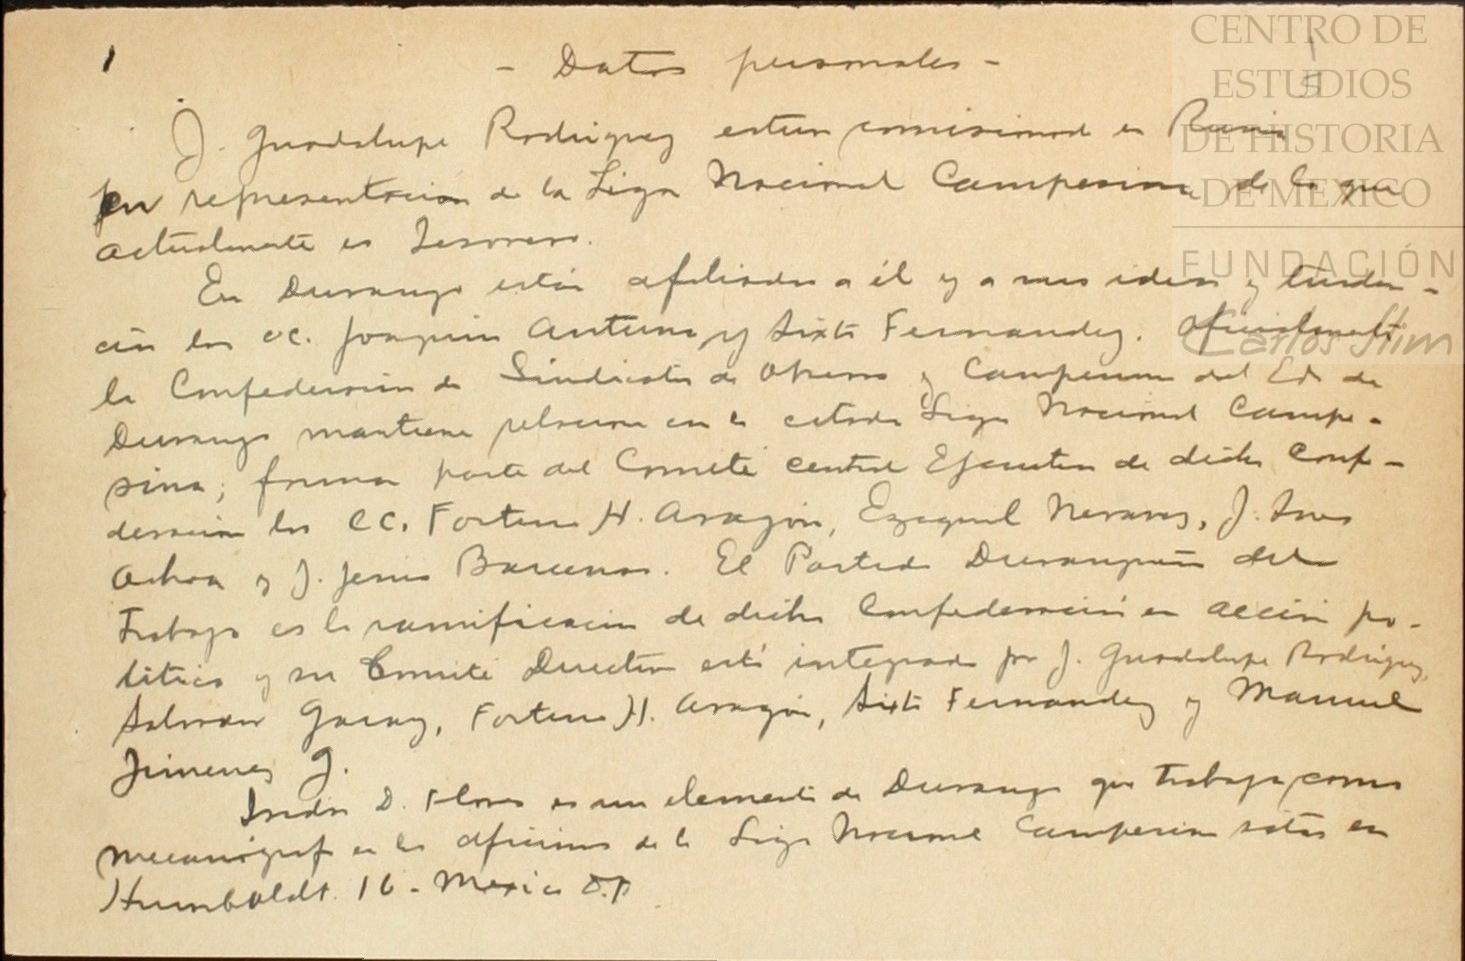 1
- Datos personales -
J. Guadalupe Rodriguez estuvo comisionado en Rusia
en representación de la Liga Nacional Campesina de la que
actualmente es Tesorero.
En Durango están afiliados a él y a sus ideas y tenden-
cia los CC. Joaquin Antuna y Sixto Fernandez. Oficialmente
la Confederación de Sindicatos de Obreros y Campesinos del Edo. de
Durango mantiene relaciones con la citada Liga Nacional Campe-
sina; forman parte del Comité central Ejecutivo de dicha Confe-
deración los CC. Fortino H. Aragón, Ezequiel Nevarez, J. Ines
Ochoa y J. Jesus Barcenas. El Partido Durangueño del
Trabajo es la ramificación de dicha Confederación en acción po-
litica y su Comité Directivo está integrado por J. Guadalupe Rodriguez,
Salvador Garay, Fortino H. Aragón, Sixto Fernandez y Manuel
Jimenez G.
Isidro D. Flores es un elemento de Durango que trabaja como
mecanógrafo en las oficinas de la Liga Nacional Campesina sitas en
Humboldt 16 - Mexico D.F.
CENTRO DE
ESTUDIOS
DE HISTORIA
DE MEXICO
FUNDACIÓN
Carlos Slim